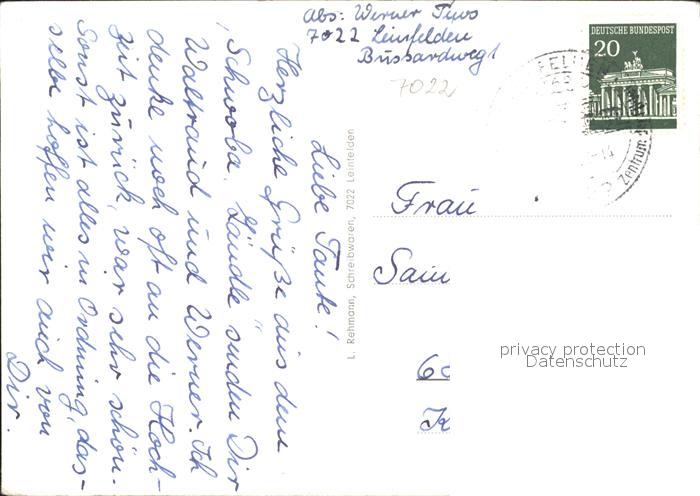 Abs: Werner
7022 Leinfelden
Bussardweg 1
7022
DEUTSCHE BUNDESPOST
20
Zentrum
Liebe Tante!
Herzliche Grüße aus dem
"Schwoba" Ländle senden Dir
Waltraud und Werner. Ich
denke noch oft an die Hoch-
zeit zurück, war sehr schön.
Sonst ist alles in Ordnung, das-
selbe hoffen wir auch von
Dir.
L. Rehmann, Schreibwaren, 7022 Leinfelden
Frau
privacy protection
Datenschutz